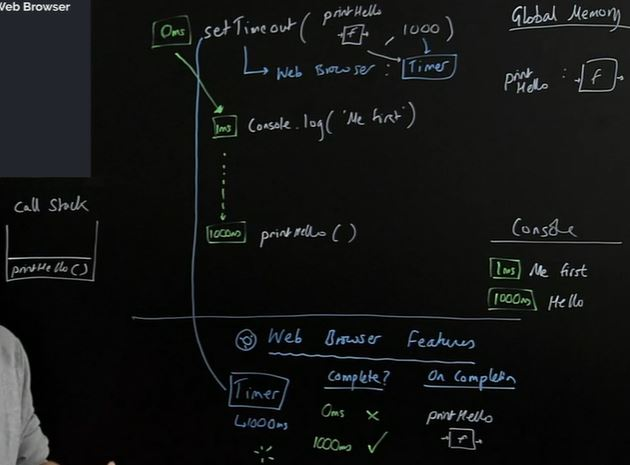 Web Browser
0ms setTimeout ( printHello f , 1000 )
Web Browser : Timer
1ms Console.log( 'Me first' )
1000ms printHello ( )
Global Memory
print Hello : f
Call Stack
printHello ( )
Console
1ms Me first
1000ms Hello
Web Browser Features
Timer
1000ms
Complete?
0ms x
1000ms ✓
On Completion
printHello
f